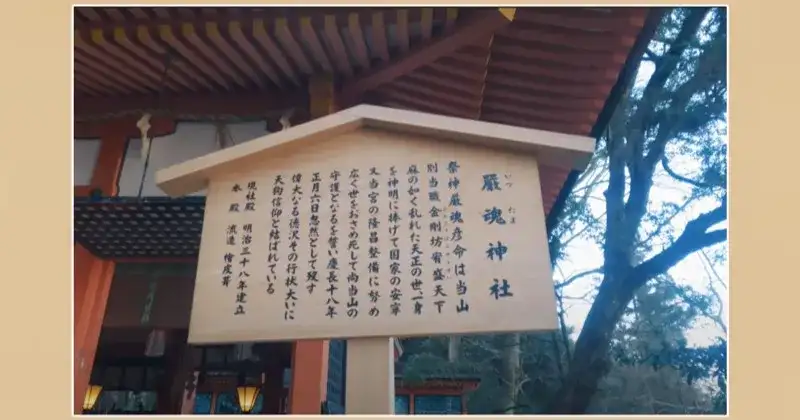 厳魂神社
いづたま
祭神厳魂彦命は当山
別当職金剛坊宥盛天下
麻の如く乱れた天正の世、一身
を神明に捧げて国家の安寧
又当宮の隆昌整備に努め
広く世をおさめ死して尚当山の
守護となるを誓い慶長十八年
正月六日忽然として歿す
偉大なる徳沢その行状大いに
天狗信仰と結ばれている
現社殿 明治三十八年建立
本殿 流造 檜皮葺